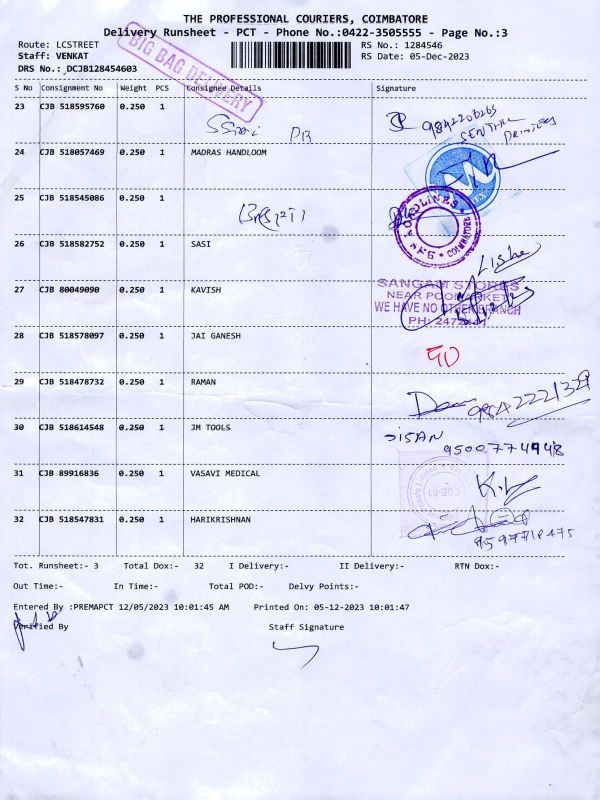 THE PROFESSIONAL COURIERS, COIMBATORE
Delivery Runsheet - PCT - Phone No.:0422-3505555 - Page No.:3
Route: LCSTREET
RS No.: 1284546
Staff: VENKAT
RS Date: 05-Dec-2023
DRS No.: DCJB128454603
BIG BAG DELIVERY
S No Consignment No Weight PCS Consignee Details Signature
23 CJB 518595760 0.250 1
9842200265
SENTHIL
PRINTERS
24 CJB 518057469 0.250 1 MADRAS HANDLOOM
25 CJB 518545086 0.250 1
COIMBATORE
26 CJB 518582752 0.250 1 SASI
27 CJB 80049090 0.250 1 KAVISH
SANGAM STORES
NEAR POOMARKET
WE HAVE NO OTHER BRANCH
28 CJB 518578097 0.250 1 JAI GANESH
29 CJB 518478732 0.250 1 RAMAN
30 CJB 518614548 0.250 1 JM TOOLS
9500774948
31 CJB 89916836 0.250 1 VASAVI MEDICAL
CBE-01
32 CJB 518547831 0.250 1 HARIKRISHNAN
Tot. Runsheet:- 3 Total Dox:- 32 I Delivery:- II Delivery:- RTN Dox:-
Out Time:- In Time:- Total POD:- Delvy Points:-
Entered By :PREMAPCT 12/05/2023 10:01:45 AM Printed On: 05-12-2023 10:01:47
Verified By Staff Signature